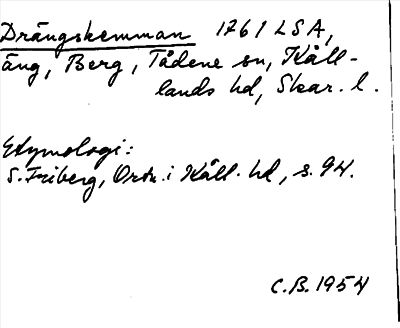 Drängskemman 1761 LSA,
äng, Berg, Tådene sn, Kåll-
lands hd, Skar. l.
Etymologi:
S. Friberg, Ortn. i Kåll. hd, s. 94.
C.B. 1954